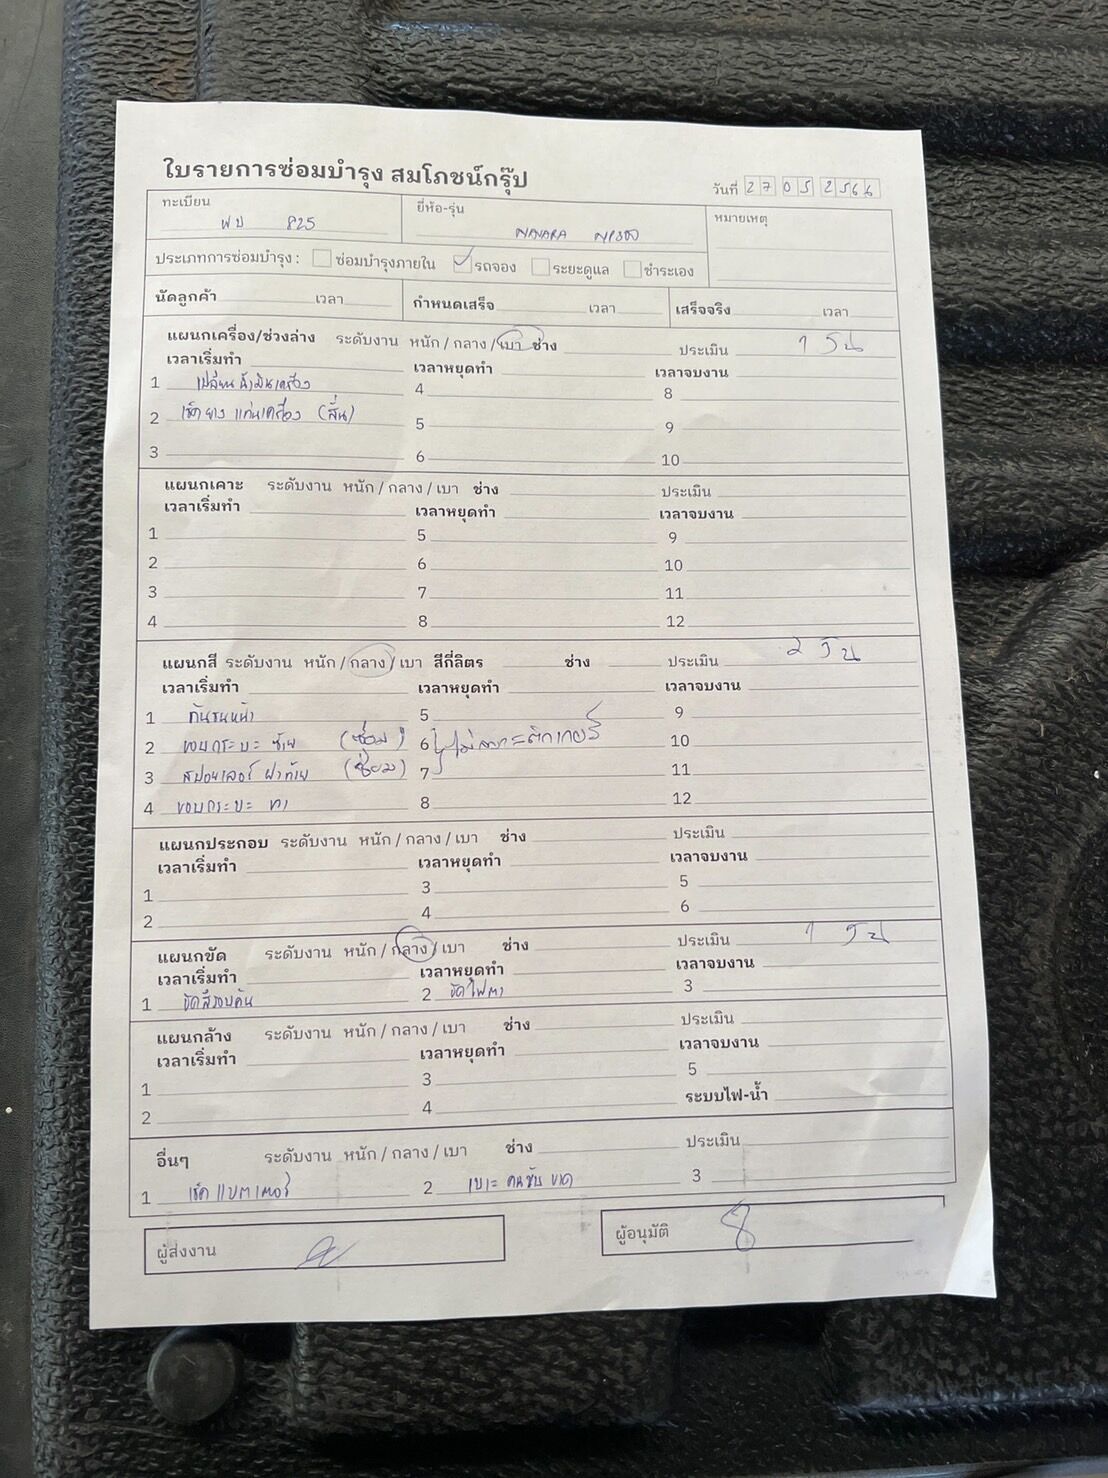 ใบรายการซ่อมบำรุง สมโภชน์กรุ๊ป
วันที่ 27 05 2566
ทะเบียน
ผบ 825
ยี่ห้อ-รุ่น
NAVARA NP300
หมายเหตุ
ประเภทการซ่อมบำรุง : ซ่อมบำรุงภายใน รถจอง ระยะดูแล ชำระเอง
นัดลูกค้า เวลา กำหนดเสร็จ เวลา เสร็จจริง เวลา
แผนกเครื่อง/ช่วงล่าง ระดับงาน หนัก / กลาง / เบา ช่าง ประเมิน 1 วัน
เวลาเริ่มทำ เวลาหยุดทำ เวลาจบงาน
1 เปลี่ยนน้ำมันเครื่อง 4 8
2 เช็คยางแท่นเครื่อง (สั่น) 5 9
3 6 10
แผนกเคาะ ระดับงาน หนัก / กลาง / เบา ช่าง ประเมิน
เวลาเริ่มทำ เวลาหยุดทำ เวลาจบงาน
1 5 9
2 6 10
3 7 11
4 8 12
แผนกสี ระดับงาน หนัก / กลาง / เบา สีกี่ลิตร ช่าง ประเมิน 2 วัน
เวลาเริ่มทำ เวลาหยุดทำ เวลาจบงาน
1 กันชนหน้า 5 9
2 ขอบกระบะ ซ้าย (ซ่อม) 6 ไม่ลอกสติกเกอร์ 10
3 สปอยเลอร์ ฝาท้าย (ซ่อม) 7 11
4 ขอบกระบะ ขวา 8 12
แผนกประกอบ ระดับงาน หนัก / กลาง / เบา ช่าง ประเมิน
เวลาเริ่มทำ เวลาหยุดทำ เวลาจบงาน
1 3 5
2 4 6
แผนกขัด ระดับงาน หนัก / กลาง / เบา ช่าง ประเมิน 1 วัน
เวลาเริ่มทำ เวลาหยุดทำ เวลาจบงาน
1 ขัดสีรอบคัน 2 ขัดไฟตา 3
แผนกล้าง ระดับงาน หนัก / กลาง / เบา ช่าง ประเมิน
เวลาเริ่มทำ เวลาหยุดทำ เวลาจบงาน
1 3 5
2 4 ระบบไฟ-น้ำ
อื่นๆ ระดับงาน หนัก / กลาง / เบา ช่าง ประเมิน
1 เช็คแบตเตอรี่ 2 เบาะ คนขับ ขาด 3
ผู้ส่งงาน ผู้อนุมัติ